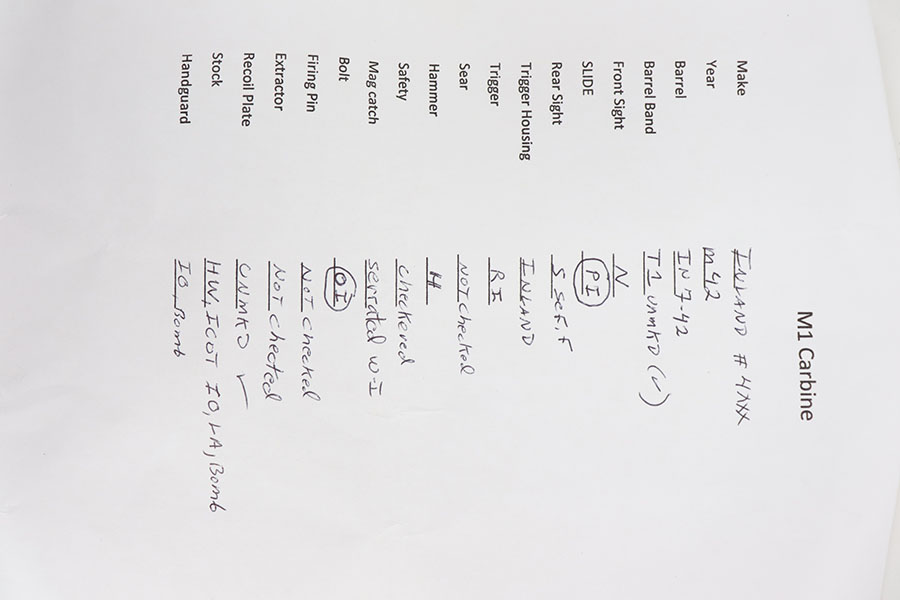 M1 Carbine
Make INLAND # 4XXX
Year M42
Barrel IN 7-42
Barrel Band T1 UNMKD (✓)
Front Sight N
SLIDE PI
Rear Sight S SEF, F
Trigger Housing INLAND
Trigger RI
Sear NOT checked
Hammer H
Safety checkered
Mag catch serrated w-I
Bolt OI
Firing Pin NOT checked
Extractor NOT checked
Recoil Plate UNMKD ✓
Stock HW, ICOT IO, LA, Bomb
Handguard IO, Bomb